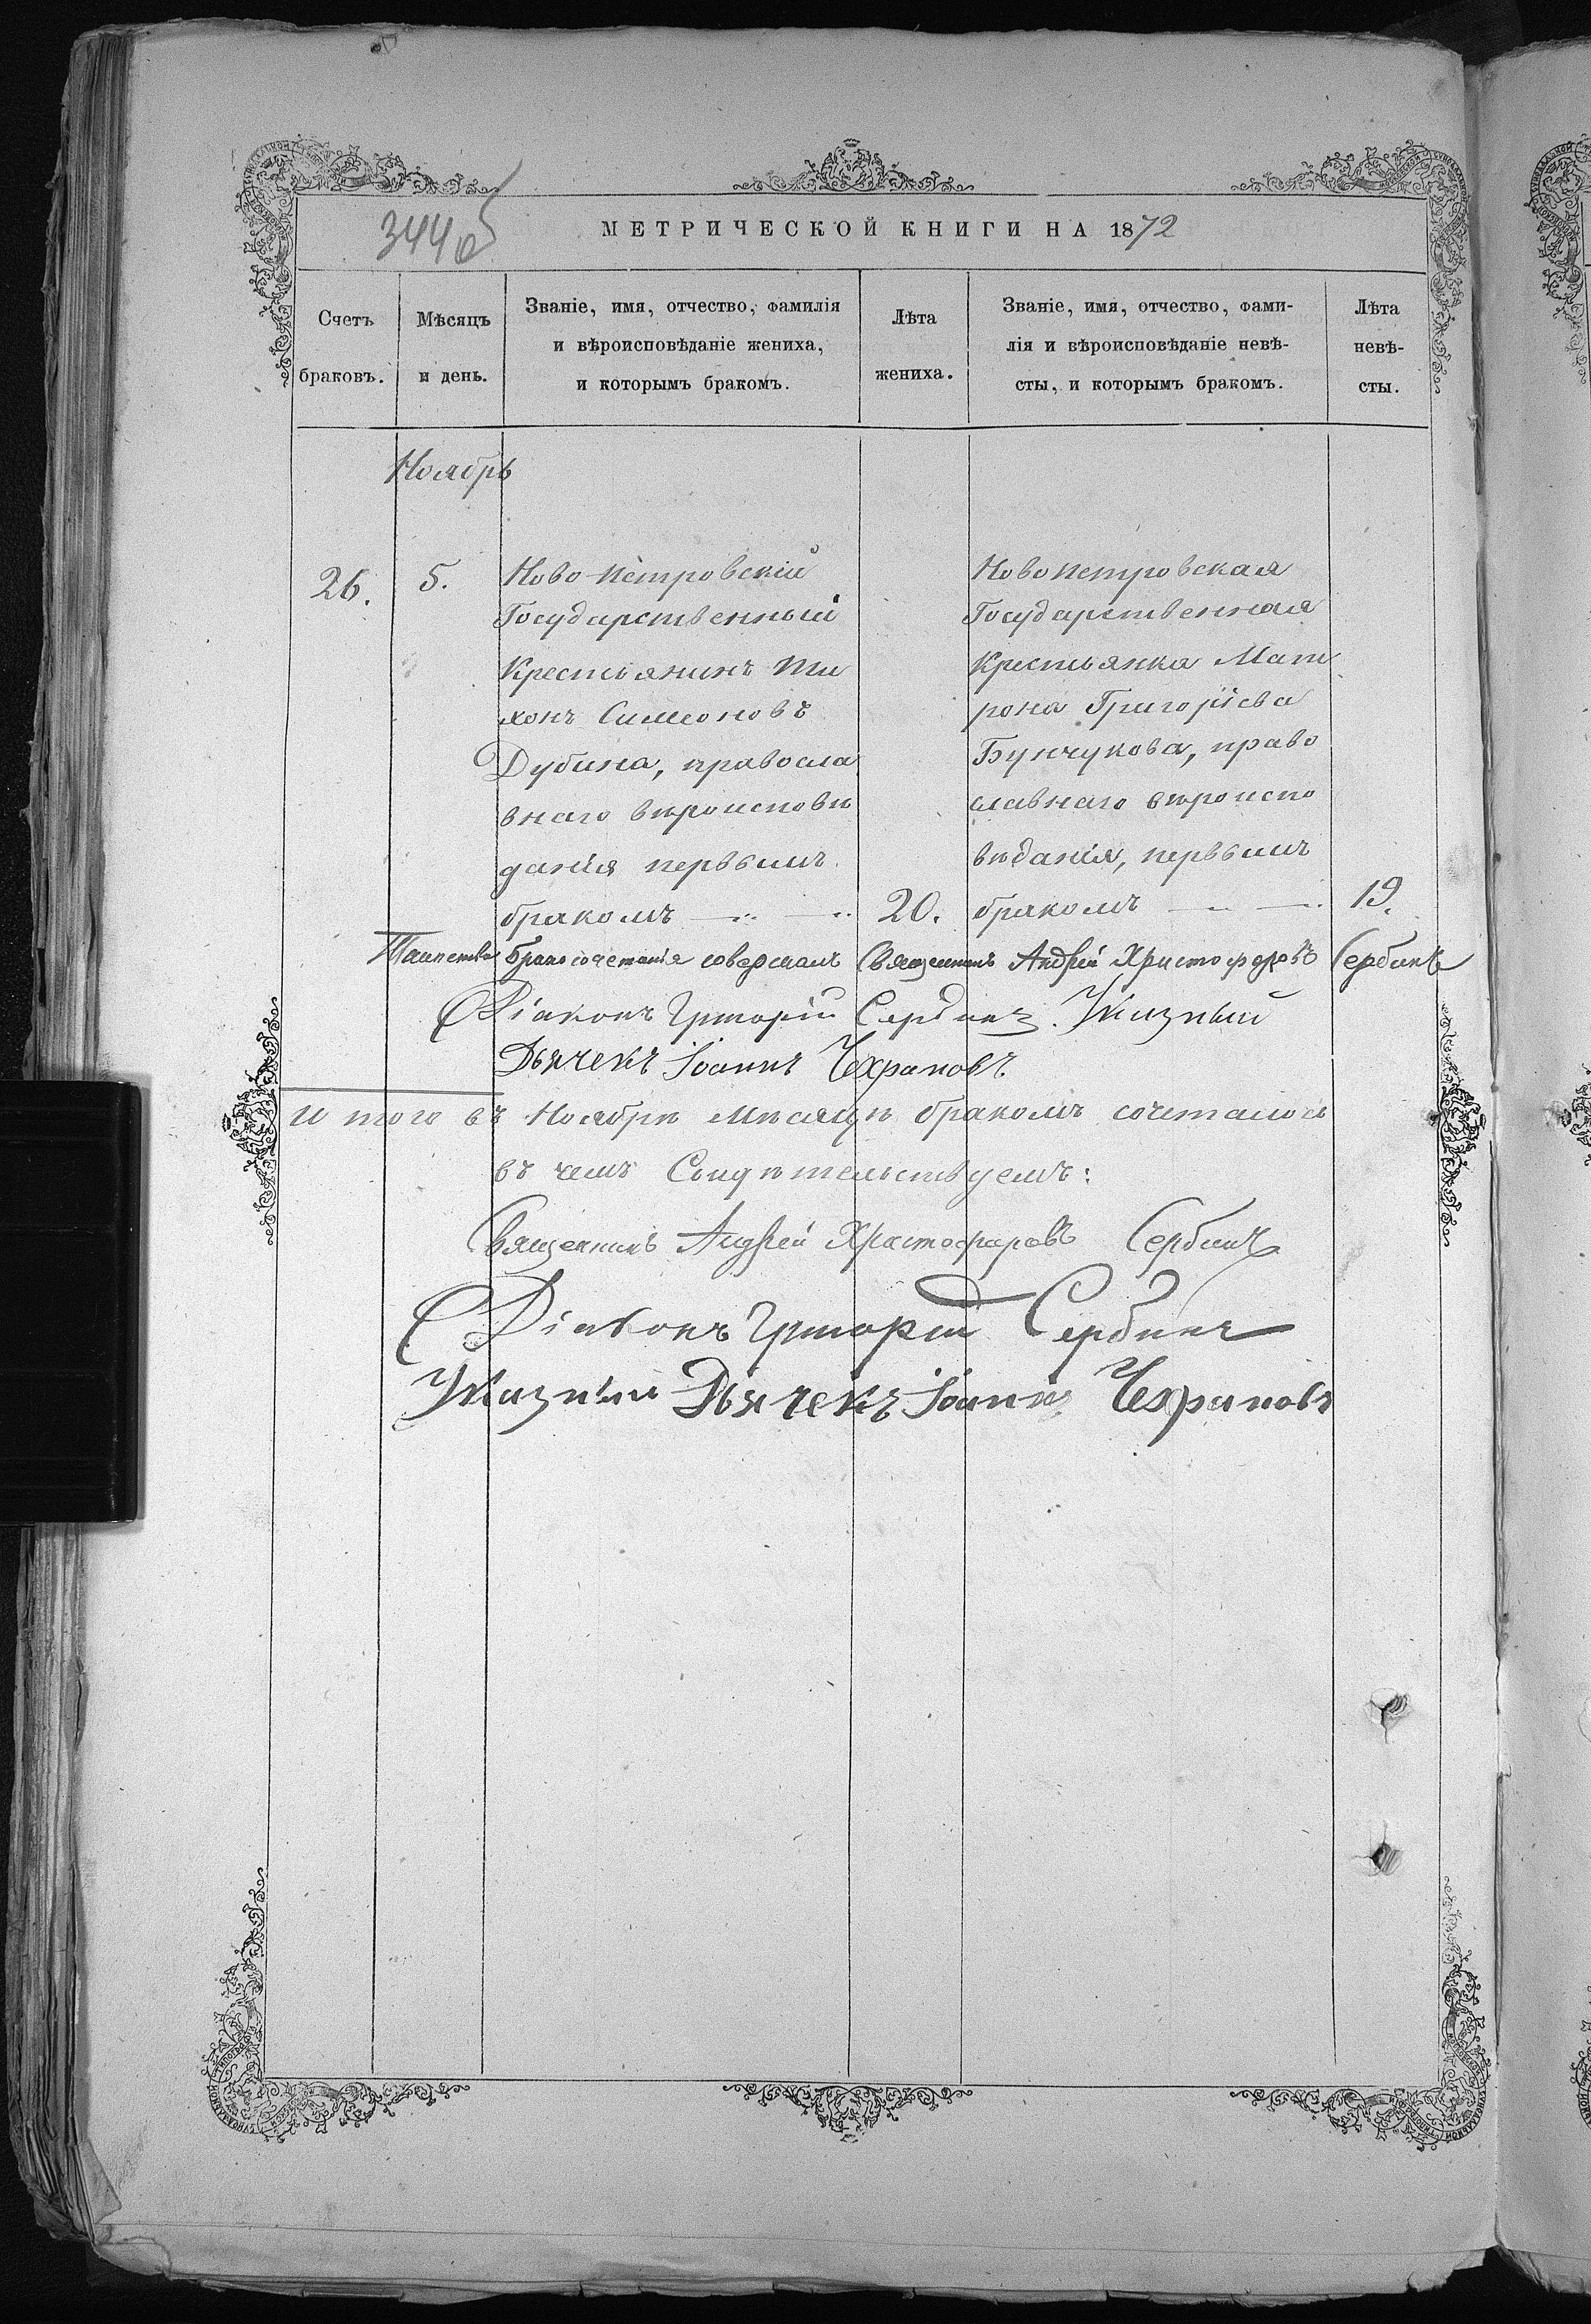 344 об
МЕТРИЧЕСКОЙ КНИГИ НА 1872
Счетъ браковъ.
Мѣсяцъ и день.
Званіе, имя, отчество, фамилія
и вѣроисповѣданіе жениха,
и которымъ бракомъ.
Лѣта жениха.
Званіе, имя, отчество, фами-
лія и вѣроисповѣданіе невѣ-
сты, и которымъ бракомъ.
Лѣта невѣ-
сты.
Ноябрь
26.
5.
Ново Петровскій
Государственный
Крестьянинъ Ти
хонъ Симеоновъ
Дубина, правосла
внаго вѣроисповѣ
данія первымъ
бракомъ
20.
Новопетровская
Государственная
Крестьянка Мат
рона Григоріева
Бунчукова, право
славнаго вѣроиспо
вѣданія, первымъ
бракомъ
19.
Таинство бракосочетанія совершалъ Священникъ Андрей Христофоровъ Сербинъ
Діаконъ Григорій Сербинъ. Указный
Дьячекъ Іоаннъ Чехрановъ
И того въ Ноябрѣ мѣсяцѣ бракомъ сочеталось
въ чемъ Свидѣтельствуемъ:
Священникъ Андрей Христофоровъ Сербинъ
Діаконъ Григорій Сербинъ
Указный Дьячекъ Іоаннъ Чехрановъ